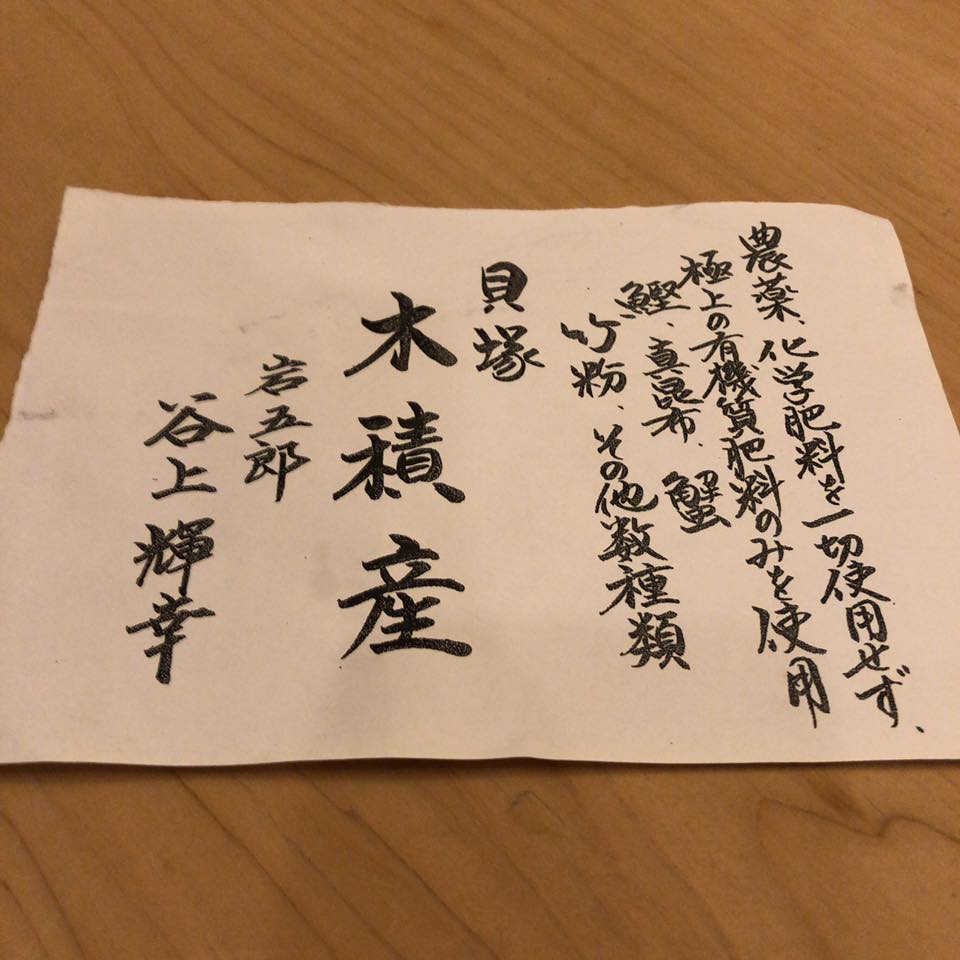 農薬、化学肥料を一切使用せず、
極上の有機質肥料のみを使用
鰹、真昆布、蟹
竹粉、その他数種類
貝塚
木積産
岩五郎
谷上輝幸